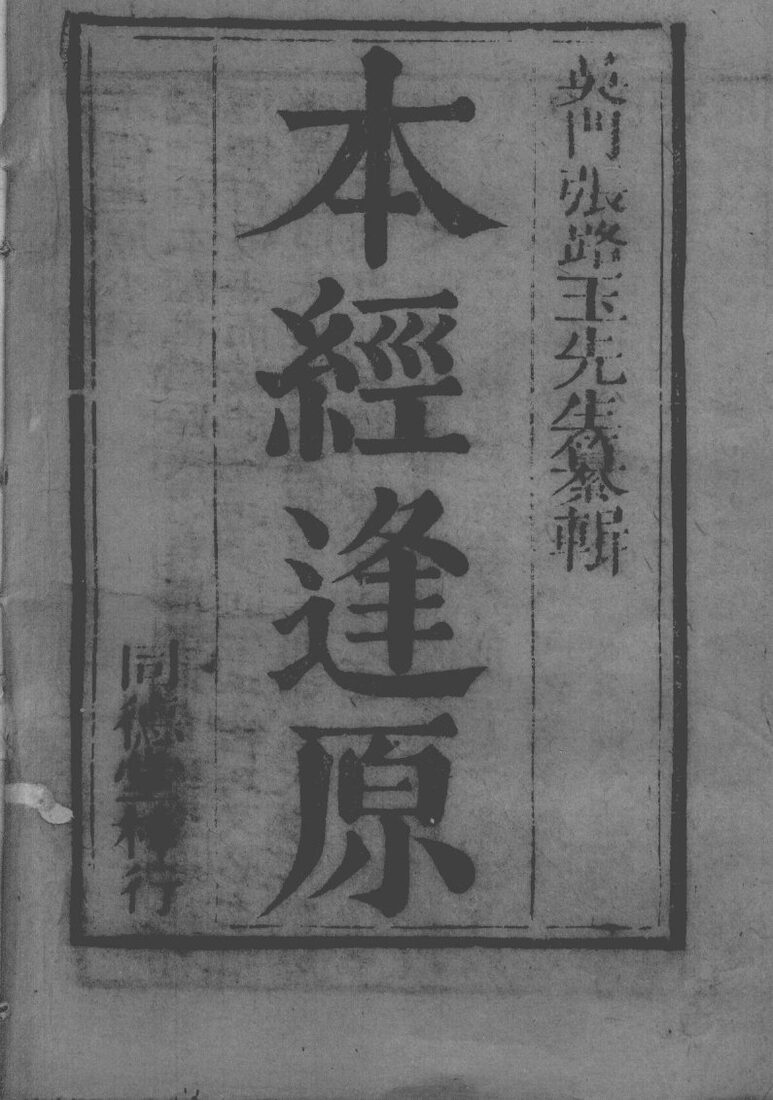 吳門張路玉先生纂輯
本經逢原
同德堂梓行